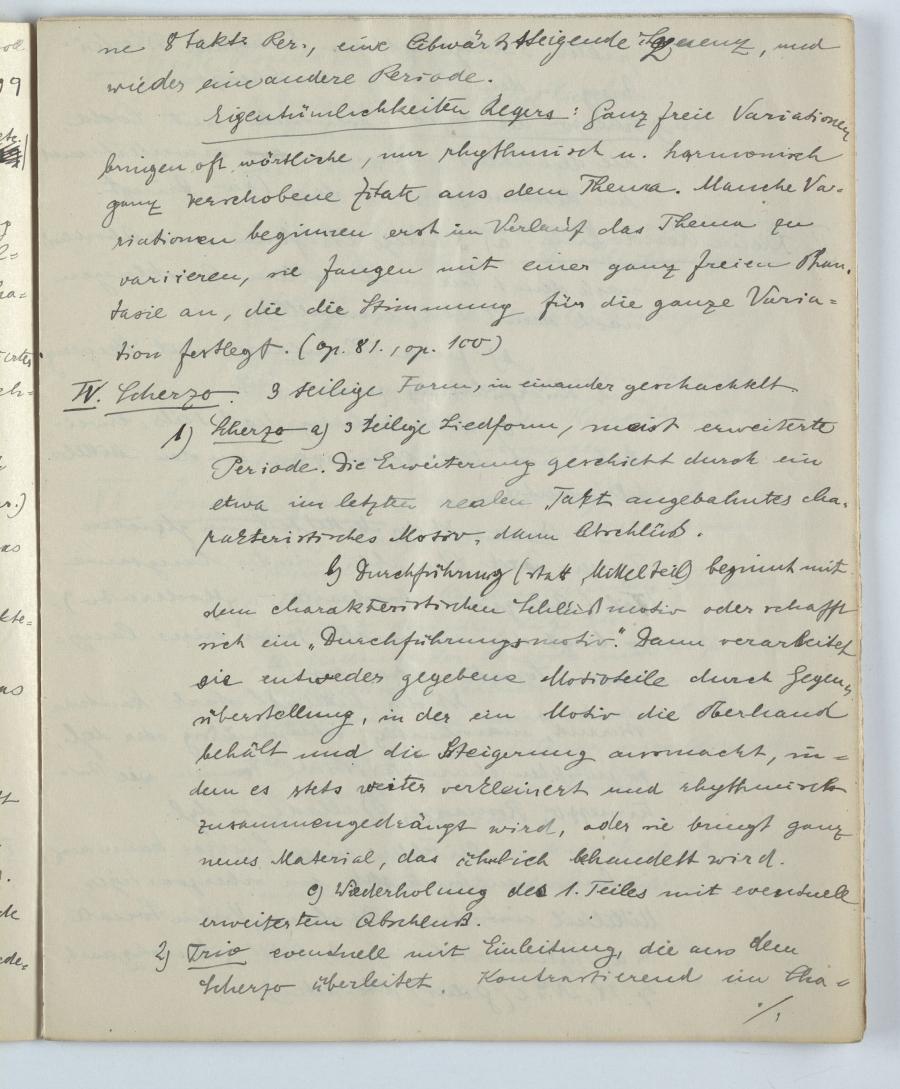 ne 8 takt. Per., eine Abwärtssteigende Sequenz, und
wieder eine andere Periode.
Eigentümlichkeiten Regers: Ganz freie Variationen
bringen oft wörtliche, nur rhythmisch u. harmonisch
ganz verschobene Zitate aus dem Thema. Manche Va-
riationen beginnen erst im Verlauf das Thema zu
variieren, sie fangen mit einer ganz freien Phan-
tasie an, die die Stimmung für die ganze Varia-
tion festlegt. (op. 81., op. 100)
IV. Scherzo. 3 teilige Form, in einander geschachtelt
1) Scherzo a) 3 teilige Liedform, meist erweiterte
Periode. Die Erweiterung geschieht durch ein
etwa im letzten realen Takt angebahntes cha-
rakteristisches Motiv, dann Abschluß.
b) Durchführung (statt Mittelteil) beginnt mit
dem charakteristischen Schlußmotiv oder schafft
sich ein „Durchführungsmotiv". Dann verarbeitet
sie entweder gegebene Motivteile durch Gegen-
überstellung, in der ein Motiv die Oberhand
behält und die Steigerung ausmacht, in-
dem es stets weiter verkleinert und rhythmisch
zusammengedrängt wird, oder sie bringt ganz
neues Material, das ähnlich behandelt wird.
c) Wiederholung des 1. Teiles mit eventuell
erweitertem Abschluß.
2) Trio eventuell mit Einleitung, die aus dem
Scherzo überleitet. Kontrastierend im Cha-
./.